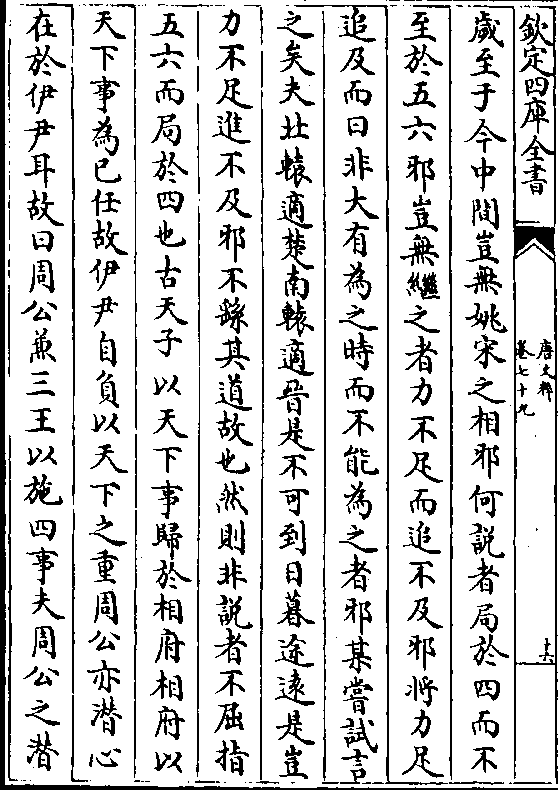 欽定四庫全書
唐文粹
卷七十九
十六
歲至于今中間豈無姚宋之相邪何説者局於四而不
至於五六邪豈無繼之者力不足而追不及邪將力足
追及而曰非大有為之時而不能為之者邪某嘗試言
之矣夫北轅適楚南轅適晉是不可到日暮途遠是豈
力不足進不及邪不繇其道故也然則非説者不屈指
五六而局於四也古天子以天下事歸於相府相府以
天下事為已任故伊尹自負以天下之重周公亦潜心
在於伊尹耳故曰周公兼三王以施四事夫周公之潜